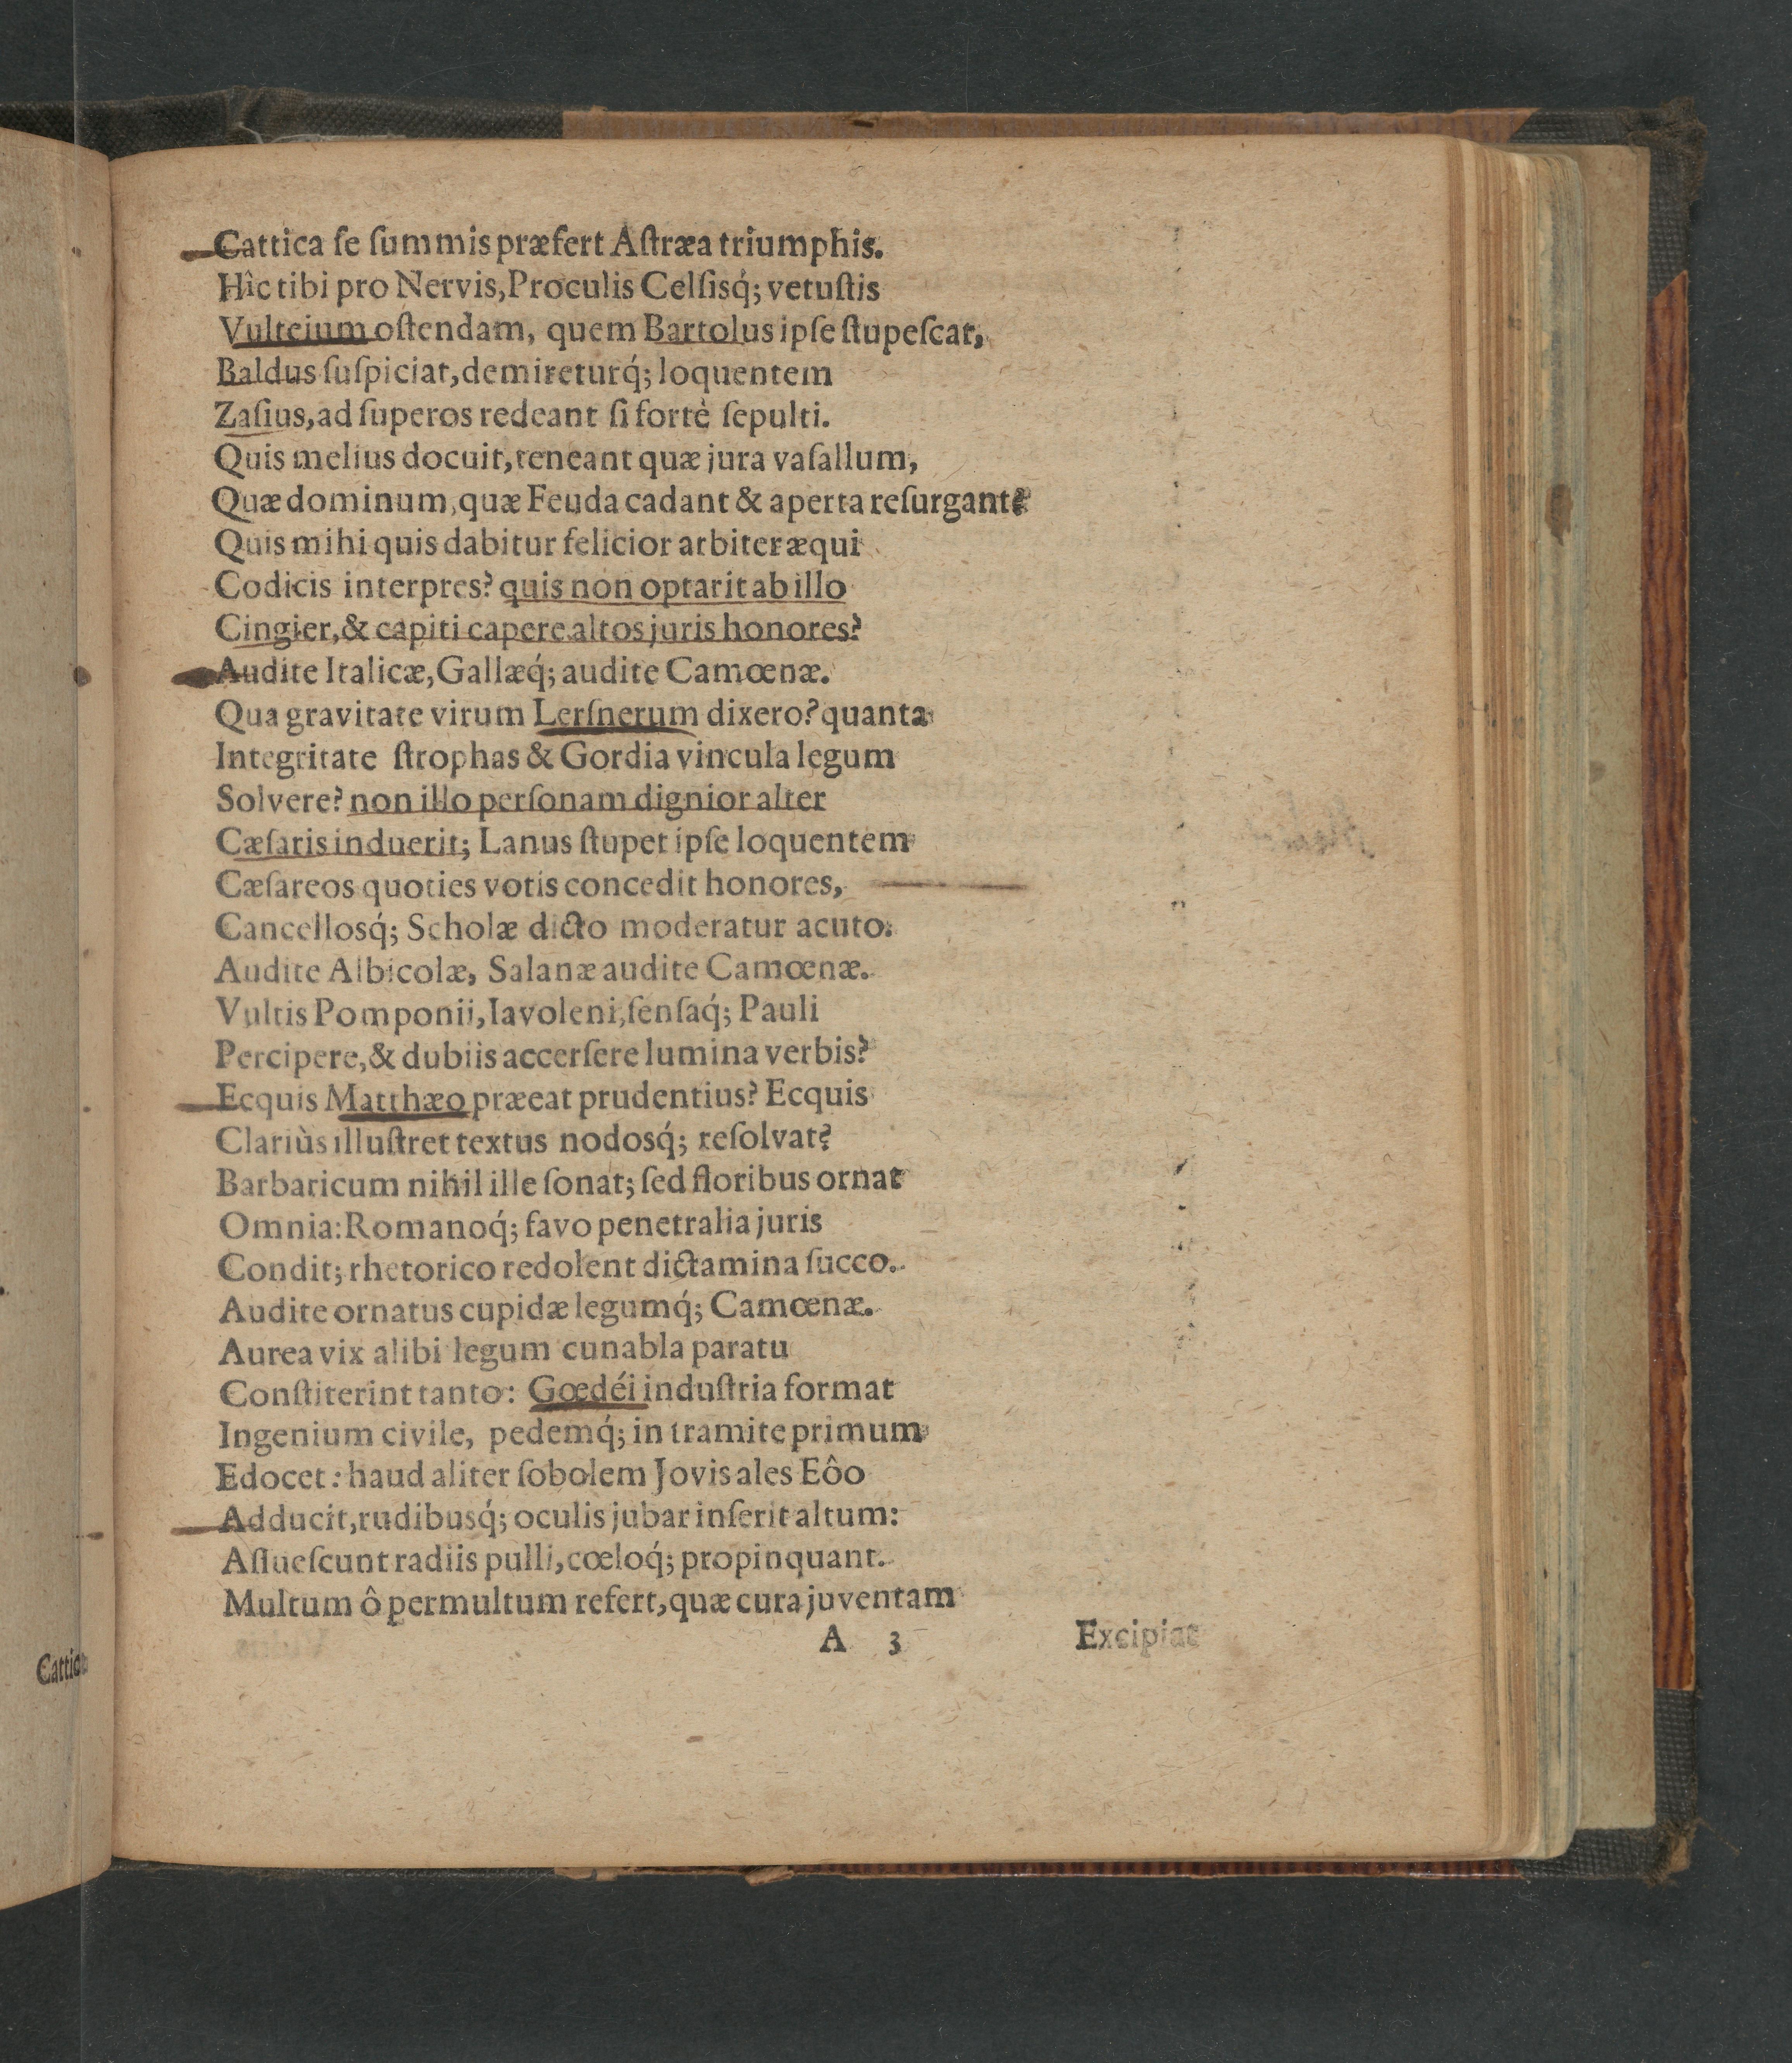 Cattica ſe ſummis præfert Aſtræa triumphis.
Hîc tibi pro Nervis, Proculis Celſisq́; vetuſtis
Vulteium oſtendam, quem Bartolus ipſe ſtupeſcat,
Baldus ſuſpiciat, demireturq́; loquentem
Zaſius, ad ſuperos redeant ſi fortè ſepulti.
Quis melius docuit, teneant quæ jura vaſallum,
Quæ dominum, quæ Feuda cadant & aperta reſurgant?
Quis mihi quis dabitur felicior arbiter æqui
Codicis interpres? quis non optarit ab illo
Cingier, & capiti capere altos juris honores?
Audite Italicæ, Gallæq́; audite Camœnæ.
Qua gravitate virum Lerſnerum dixero? quanta
Integritate ſtrophas & Gordia vincula legum
Solvere? non illo perſonam dignior alter
Cæſaris induerit; Lanus ſtupet ipſe loquentem
Cæſareos quoties votis concedit honores,
Cancellosq́; Scholæ dicto moderatur acuto.
Audite Albicolæ, Salanæ audite Camœnæ.
Vultis Pomponii, Iavoleni, ſenſaq́; Pauli
Percipere, & dubiis accerſere lumina verbis?
Ecquis Matthæo præeat prudentius? Ecquis
Clariùs illuſtret textus nodosq́; reſolvat?
Barbaricum nihil ille ſonat; ſed floribus ornat
Omnia: Romanoq́; favo penetralia juris
Condit; rhetorico redolent dictamina ſucco.
Audite ornatus cupidæ legumq́; Camœnæ.
Aurea vix alibi legum cunabla paratu
Conſtiterint tanto: Gœdéi induſtria format
Ingenium civile, pedemq́; in tramite primum
Edocet: haud aliter ſobolem Jovis ales Eôo
Adducit, rudibusq́; oculis jubar inſerit altum:
Aſſueſcunt radiis pulli, cœloq́; propinquant.
Multum ô permultum refert, quæ cura juventam
A 3 Excipiat